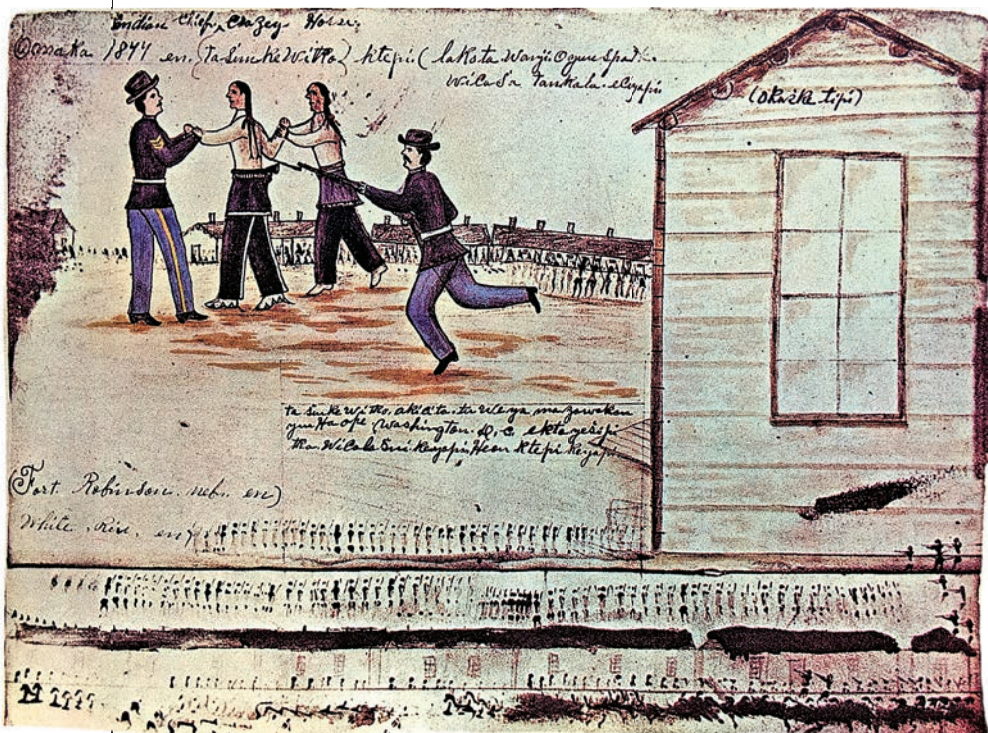 Indian Chief, Crazey Horse.
Omaka 1877 en. (Tasunke Witko) ktepi (lakota Wanji Oguu Spa).
Wicasa Tankala. eciyapi
(Okaske tipi)
ta sunke Witko. akicita. ta Weya mazawakan
Washington. D, C. ektagesipi
tka. Wicala Sni keyapi Heun Ktepi keyapi.
(Fort. Robinson. neb. en)
White en